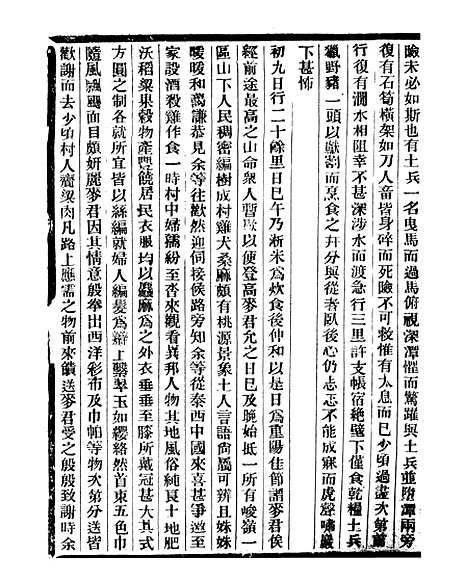 險未必如斯也有土兵一名曳馬而過馬俯視深潭懼而驚躍與土兵並墮潭兩旁
復有石筍橫架如刀人畜皆身碎而死險不可救惟有太息而已少頃過盡次第前
行復有澗水相阻幸不甚深涉水而渡急行三里許支帳宿絶壁下僅食乾糧土兵
獵野豬一頭以獻割而烹食之并分與從者臥後心仍忐忑不能成寐而虎聲嘯巖
下甚怖
初九日行二十餘里日已午乃淅米為炊食後仲和以是日爲重陽佳節請麥君俟
經前途最高之山命衆人暫歇以便登高麥君允之日已及晚始抵一所有峻嶺一
區山下人民稠密編樹成村雞犬桑麻頗有桃源景象土人言語尚屬可辨且姝姝
暖暖和藹謙恭見余等往歡然迎伺接候路旁知余等從泰西中國來喜甚爭邀至
家設酒殺雞作食一時村中婦孺紛至沓來觀看異邦人物其地風俗純良土地肥
沃稻粱果穀物產豐饒居民衣服均以蠶麻爲之外衣垂垂至膝所戴冠甚大其式
方圓之制各就所宜皆以絲編就婦人編髮爲辮上繫翠玉如纓絡然首束五色巾
隨風飄颺面目頗妍麗麥君因其情意殷拳出西洋彩布及巾帕等物次第分送
歡謝而去少頃村人賫粱肉凡路上應需之物前來饋送麥君受之殷殷致謝時余